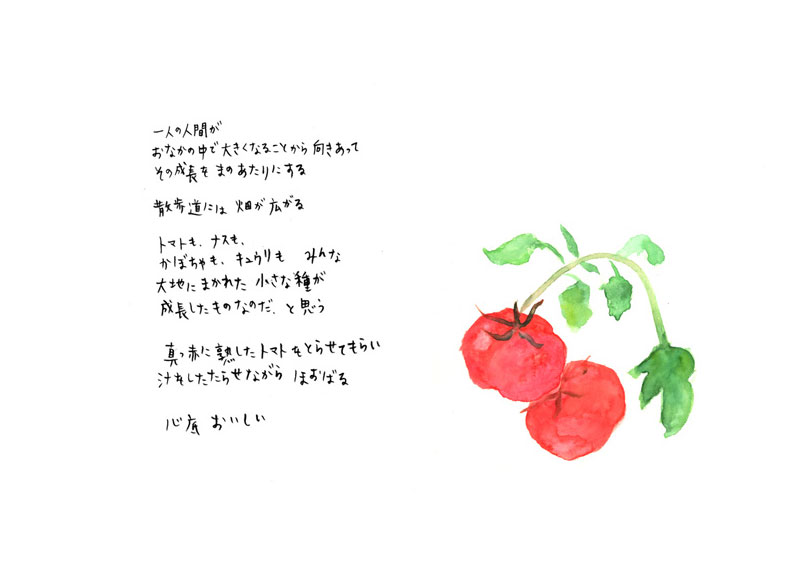 一人の人間が
おなかの中で大きくなることから向きあって
その成長をまのあたりにする
散歩道には 畑が広がる
トマトも、ナスも、
かぼちゃも、キュウリも みんな
大地にまかれた 小さな種が
成長したものなのだ、と思う
真っ赤に熟したトマトをとらせてもらい
汁をしたたらせながら ほおばる
心底 おいしい